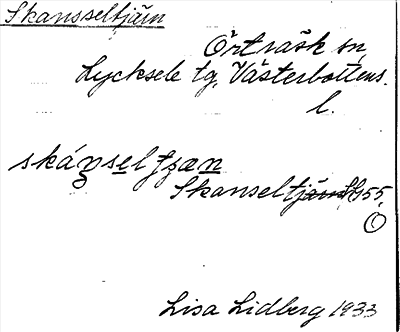 Skansseltjärn
Örträsk sn,
Lycksele tg, Västerbottens
l.
skánsel tjæn
Skanseltjärn Hs 55,
O
Lisa Lidberg 1933